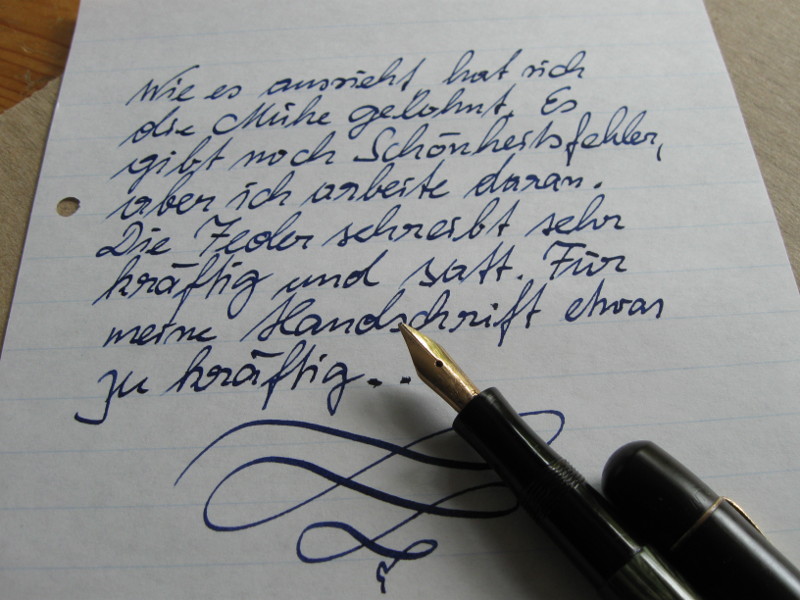 Wie es aussieht, hat sich
die Mühe gelohnt. Es
gibt noch Schönheitsfehler,
aber ich arbeite daran.
Die Feder schreibt sehr
kräftig und satt. Für
meine Handschrift etwas
zu kräftig...